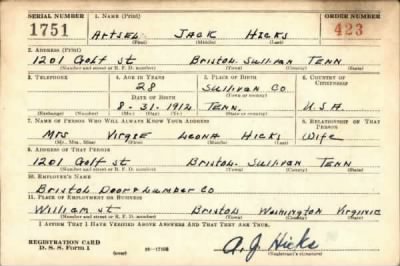 SERIAL NUMBER 1. NAME (Print) ORDER NUMBER
1751 ARTSEL JACK HICKS 423
(First) (Middle) (Last)
2. ADDRESS (Print)
1201 Golf st Bristol Sullivan Tenn
(Number and street or R. F. D. number) (Town) (County) (State)
3. TELEPHONE 4. AGE IN YEARS 5. PLACE OF BIRTH 6. COUNTRY OF CITIZENSHIP
28 Sullivan Co
DATE OF BIRTH (Town or county)
8-31-1912 Tenn. U.S.A.
(Exchange) (Number) (Mo.) (Day) (Yr.) (State or country)
7. NAME OF PERSON WHO WILL ALWAYS KNOW YOUR ADDRESS 8. RELATIONSHIP OF THAT PERSON
Mrs Virgie Leona Hicks Wife
(Mr., Mrs., Miss) (First) (Middle) (Last)
9. ADDRESS OF THAT PERSON
1201 Golf st Bristol. Sullivan Tenn
(Number and street or R. F. D. number) (Town) (County) (State)
10. EMPLOYER'S NAME
Bristol Door & Lumber Co
11. PLACE OF EMPLOYMENT OR BUSINESS
William st Bristol Washington Virginia
(Number and street or R. F. D. number) (Town) (County) (State)
I AFFIRM THAT I HAVE VERIFIED ABOVE ANSWERS AND THAT THEY ARE TRUE.
REGISTRATION CARD
D. S. S. Form 1 (over) A. J Hicks
(Registrant's signature)